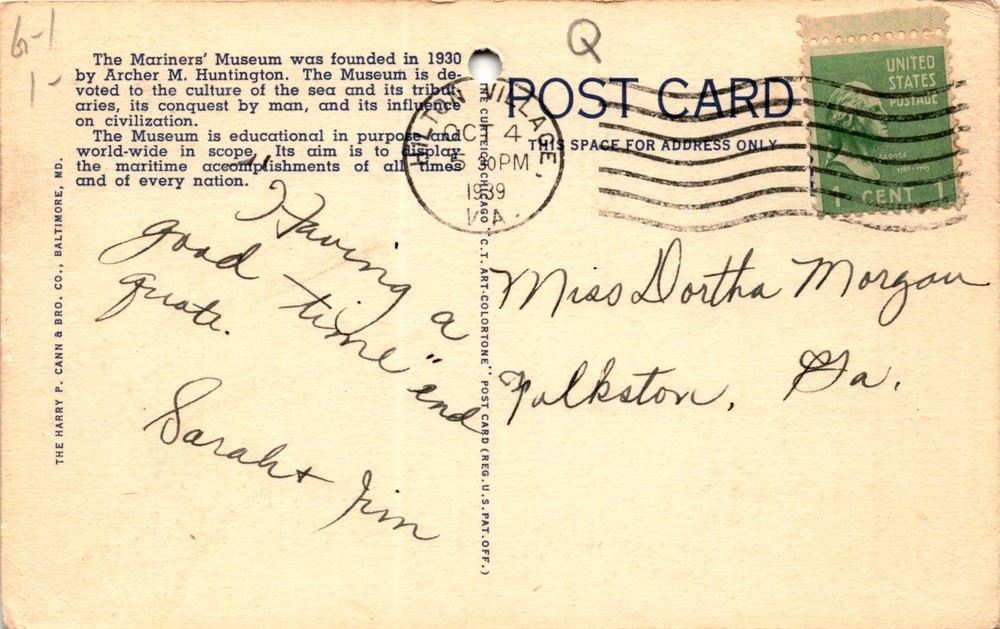 6-1
1-
Q
The Mariners' Museum was founded in 1930
by Archer M. Huntington. The Museum is de-
voted to the culture of the sea and its tribut-
aries, its conquest by man, and its influence
on civilization.
The Museum is educational in purpose and
world-wide in scope. Its aim is to display
the maritime accomplishments of all times
and of every nation.
POST CARD
THIS SPACE FOR ADDRESS ONLY
HILTON VILLAGE,
OCT 4
5 30 PM
1939
VA.
UNITED
STATES
POSTAGE
1 CENT 1
"Having a
good time" end
quote.
Sarah + Jim
Miss Dortha Morgan
Folkston, Ga.
THE HARRY P. CANN & BRO. CO., BALTIMORE, MD.
CURTEICH-CHICAGO "C.T. ART-COLORTONE" POST CARD (REG. U.S. PAT. OFF.)